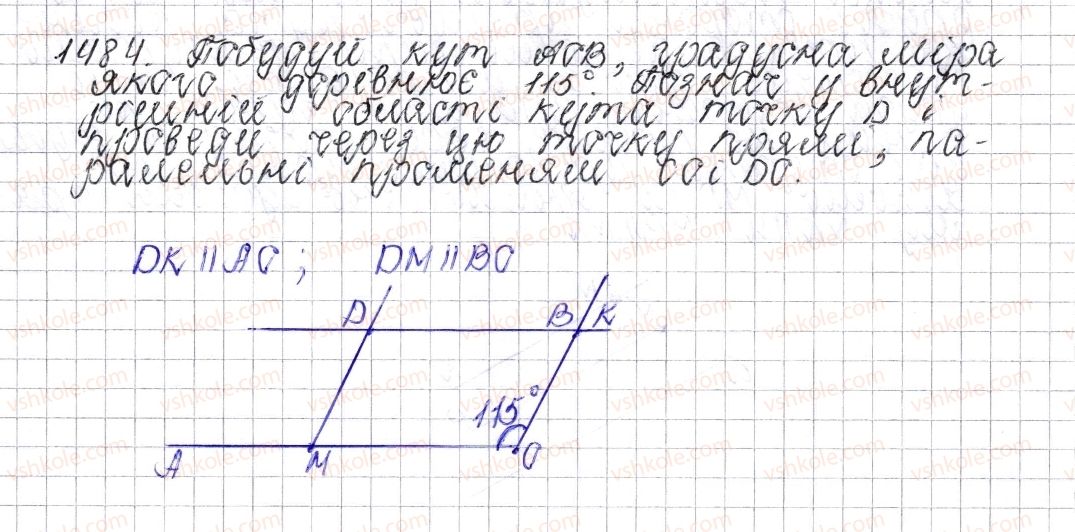 1484. Побудуй кут АСВ, градусна міра
якого дорівнює 115°. Познач у внут-
рішній області кута точку D і
проведи через цю точку прямі, па-
ралельні променям
DK || AC ; DM || BC
D B K
115°
A M C